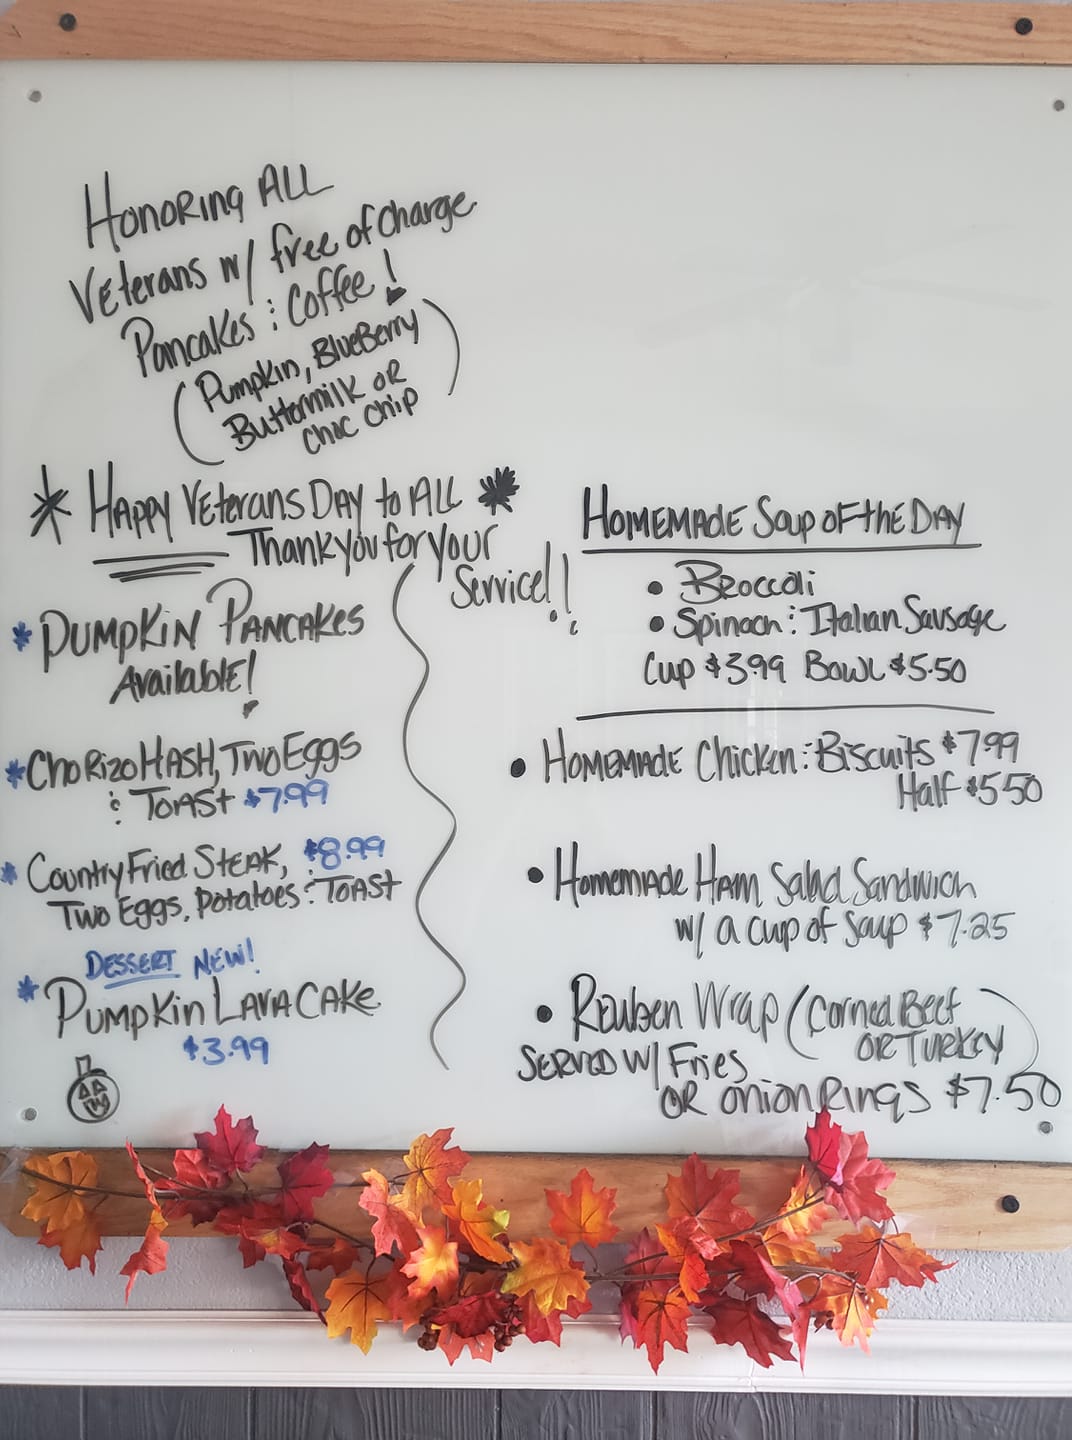 Honoring ALL
Veterans w/ free of charge
Pancakes : Coffee!
(Pumpkin, BlueBerry
Buttermilk OR
Choc Chip)
* Happy Veterans Day to ALL *
Thank you for your
Service!!
* Pumpkin Pancakes
Available!
* Chorizo Hash, Two Eggs
: Toast $7.99
* Country Fried Steak, $8.99
Two Eggs, Potatoes : Toast
Dessert New!
* Pumpkin Lava Cake
$3.99
Homemade Soup of the Day
• Broccoli
• Spinach : Italian Sausage
Cup $3.99 Bowl $5.50
• Homemade Chicken : Biscuits $7.99
Half $5.50
• Homemade Ham Salad Sandwich
w/ a cup of soup $7.25
• Reuben Wrap (Corned Beef
OR Turkey)
Served w/ Fries
OR Onion Rings $7.50